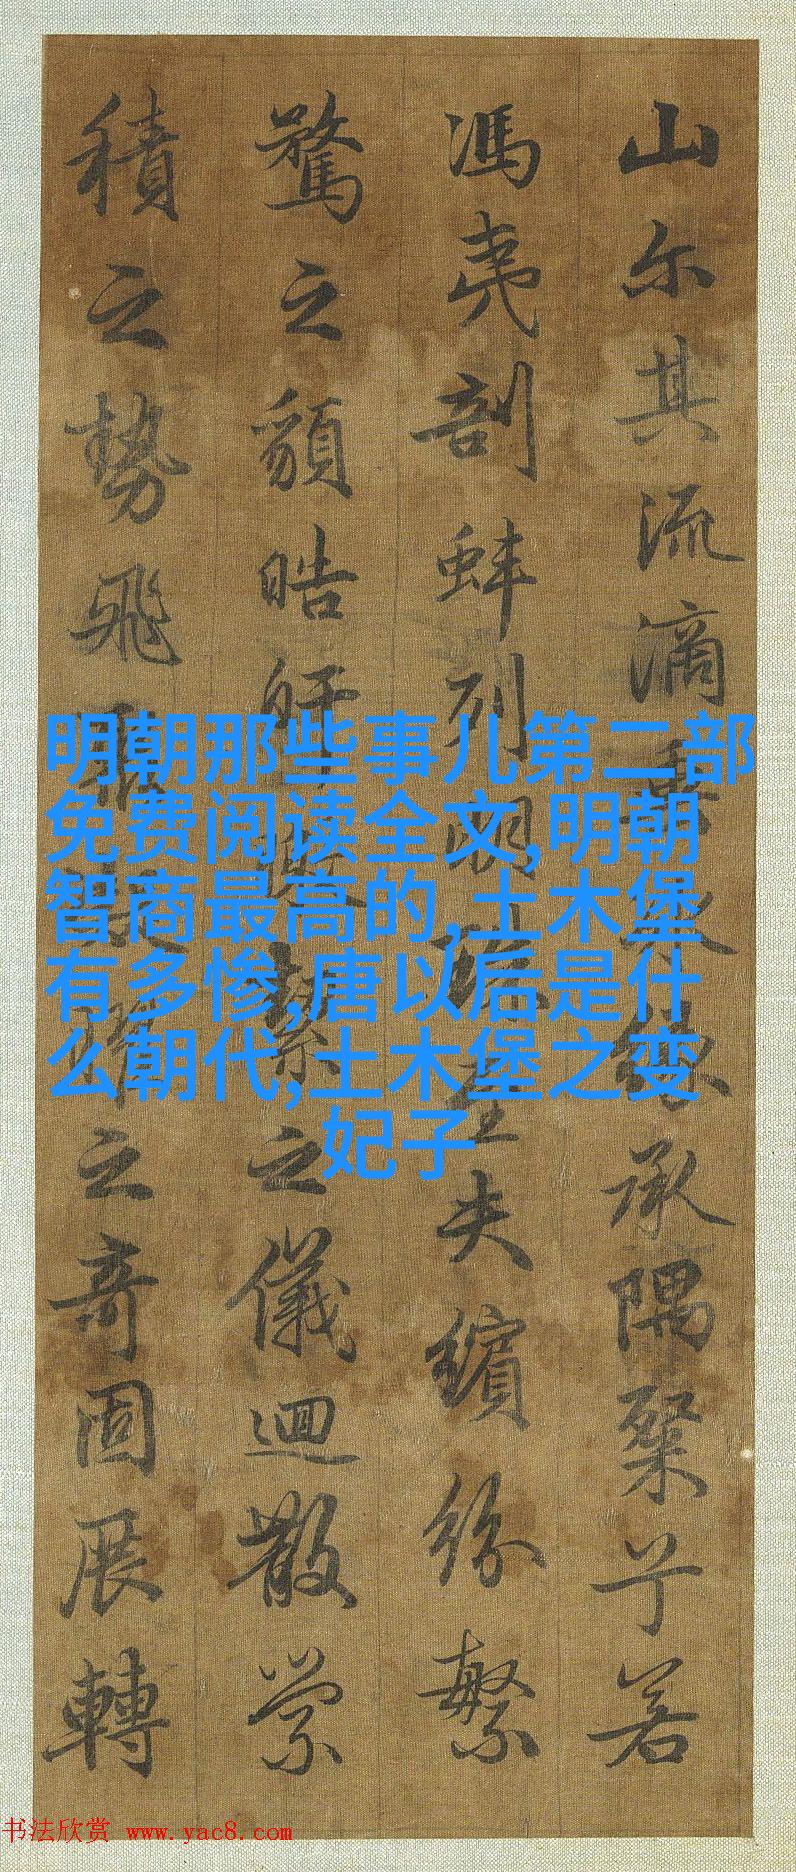 山尔其流滴垂冰緣承隅粲兮若
馮夷剖蚌列明珠至夫繽紛繁
驚之貌晧旰絜之儀迴散縈
積之勢飛聚凝曜之奇固展轉
明朝那些事儿第二部
免费阅读全文,明朝
智商最高的,土木堡
有多惨,唐以后是什
么朝代,土木堡之变
妃子
书法欣赏 www.yac8.com